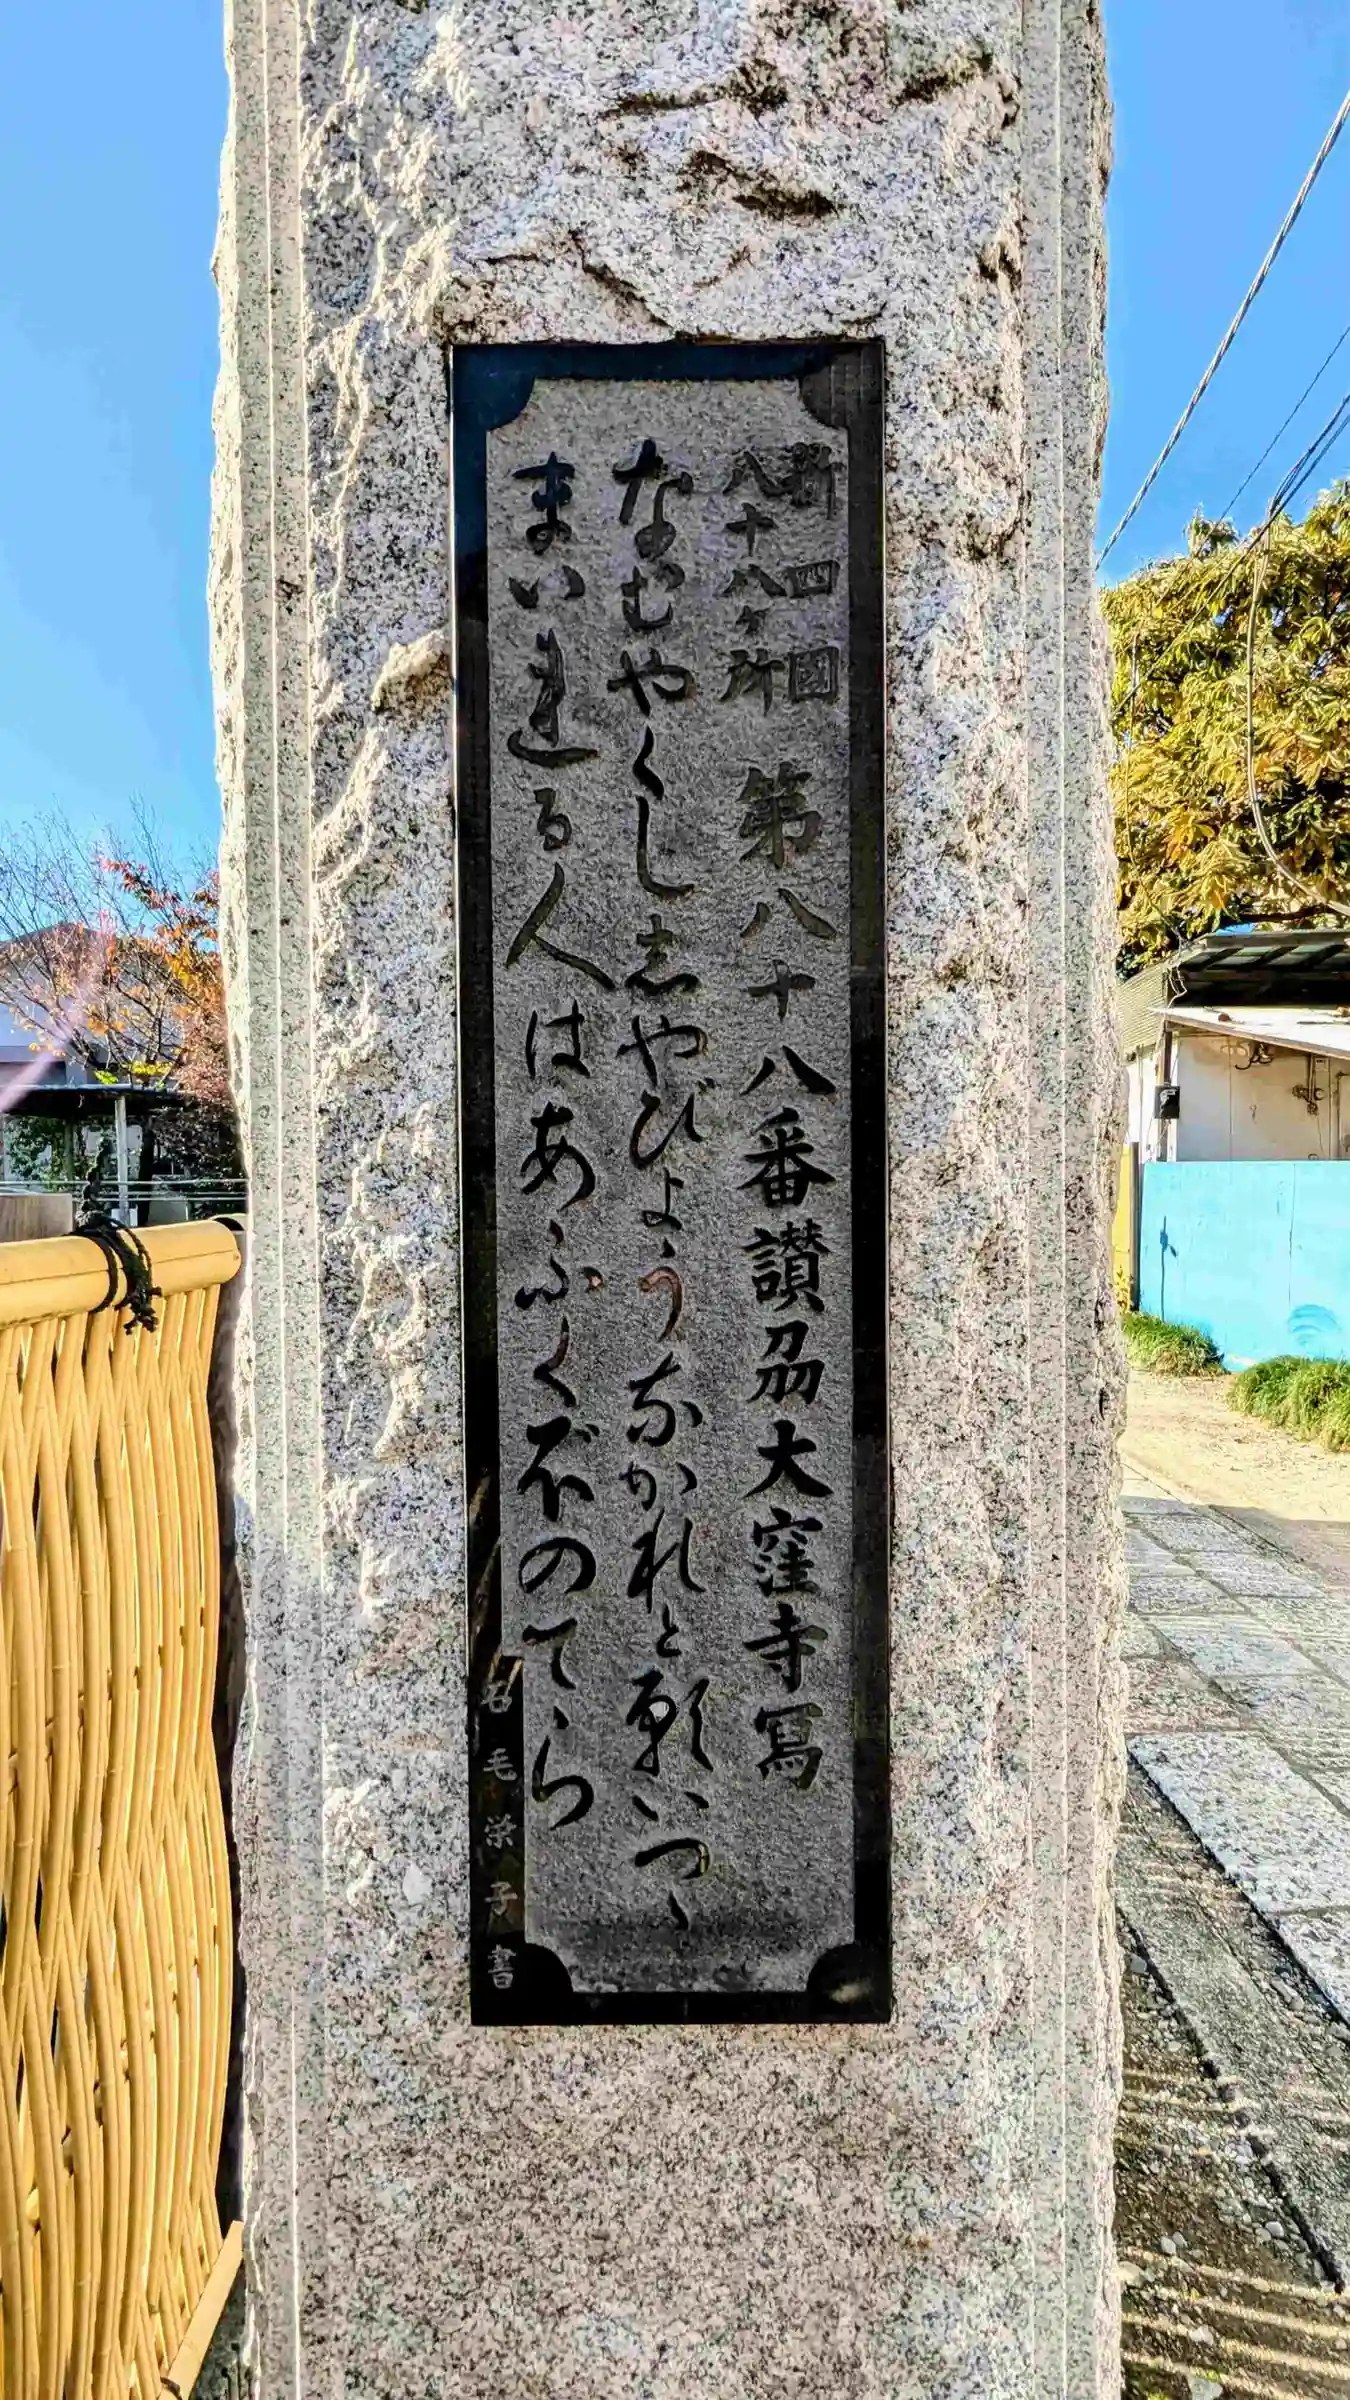 新四國
八十八ヶ所
第八十八番讃刕大窪寺冩
なむやくし志やびょうなかれと願いつゝ
まいれる人はあふくぼのてら
石毛榮子書